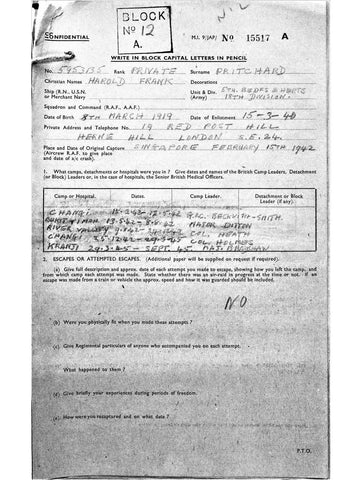 NIL
BLOCK
Nº 12
A.
CONFIDENTIAL
M.I. 9/JAP/ No 15517 A
WRITE IN BLOCK CAPITAL LETTERS IN PENCIL
No. 5953135 Rank PRIVATE Surname PRITCHARD
Christian Names HAROLD FRANK Decorations
Ship (R.N., U.S.N. or Merchant Navy) Unit & Div. (Army) 5TH BEDFS & HERTS 18TH DIVISION.
Squadron and Command (R.A.F., A.A.F.)
Date of Birth 8TH MARCH 1919 Date of Enlistment 15-3-40
Private Address and Telephone No. 19 RED POST HILL
HERNE HILL LONDON S.E.24.
Place and Date of Original Capture SINGAPORE FEBRUARY 15TH 1942
(Aircrew R.A.F. to give place and date of a/c crash).
1. What camps, detachments or hospitals were you in? Give dates and names of the British Camp Leaders, Detachment (or Block) Leaders or, in the case of hospitals, the Senior British Medical Officers.
Camp or Hospital. Dates. Camp Leader. Detachment or Block Leader (if any).
CHANGI BECKWITH-SMITH.
BUKIT TIMOR MAJOR
RIVER VALLEY COL. HEATH
CHANGI COL. HOLMES
KRANJI SEPT. 45 MAJ.
2. ESCAPES OR ATTEMPTED ESCAPES. (Additional paper will be supplied on request if required).
(a) Give full description and approx. date of each attempt you made to escape, showing how you left the camp, and from which camp each attempt was made. State whether there was an air-raid in progress at the time or not. If an escape was made from a train or vehicle the approx. speed and how it was guarded should be included.
NO
(b) Were you physically fit when you made these attempts?
(c) Give Regimental particulars of anyone who accompanied you on each attempt.
What happened to them?
(d) Give briefly your experiences during periods of freedom.
(e) How were you recaptured and on what date?
P.T.O.